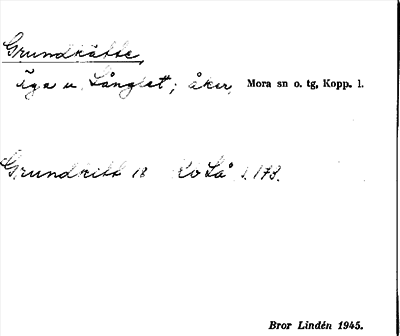 Grundkätte,
Äga u. Långlet; åker. Mora sn o. tg, Kopp. l.
Grundkitt 18 Ko Lå s. 173.
Bror Lindén 1945.